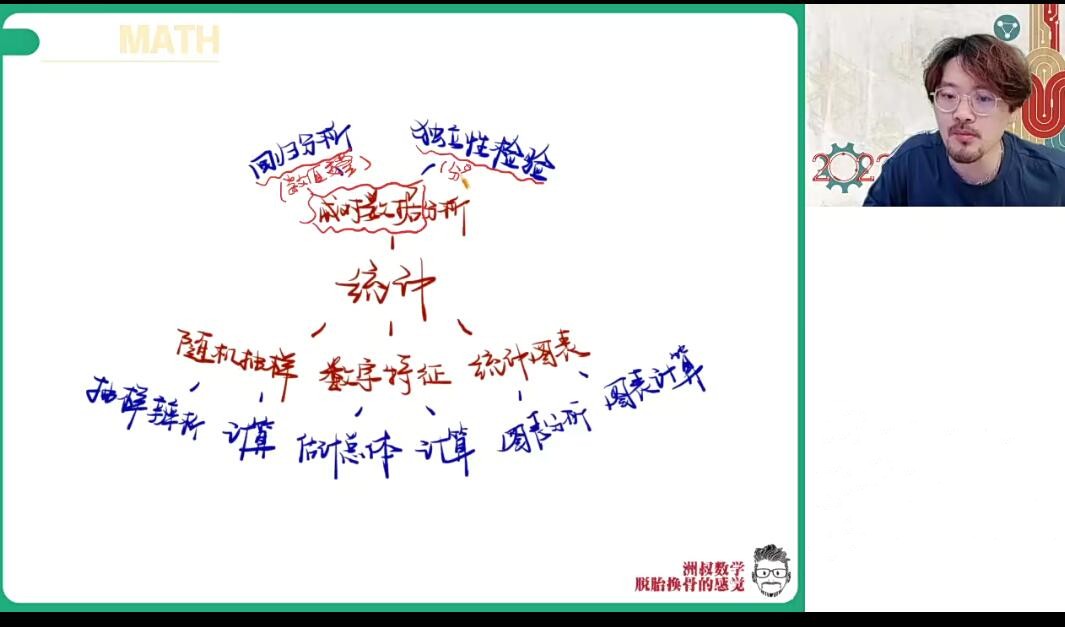 MATH
回归分析
独立性检验
(数值型)
(分
成对数据分析
统计
随机抽样
数字特征
统计图表
抽样辨析
计算
估计总体
计算
图表分析
图表计算
洲叔数学
脱胎换骨的感觉